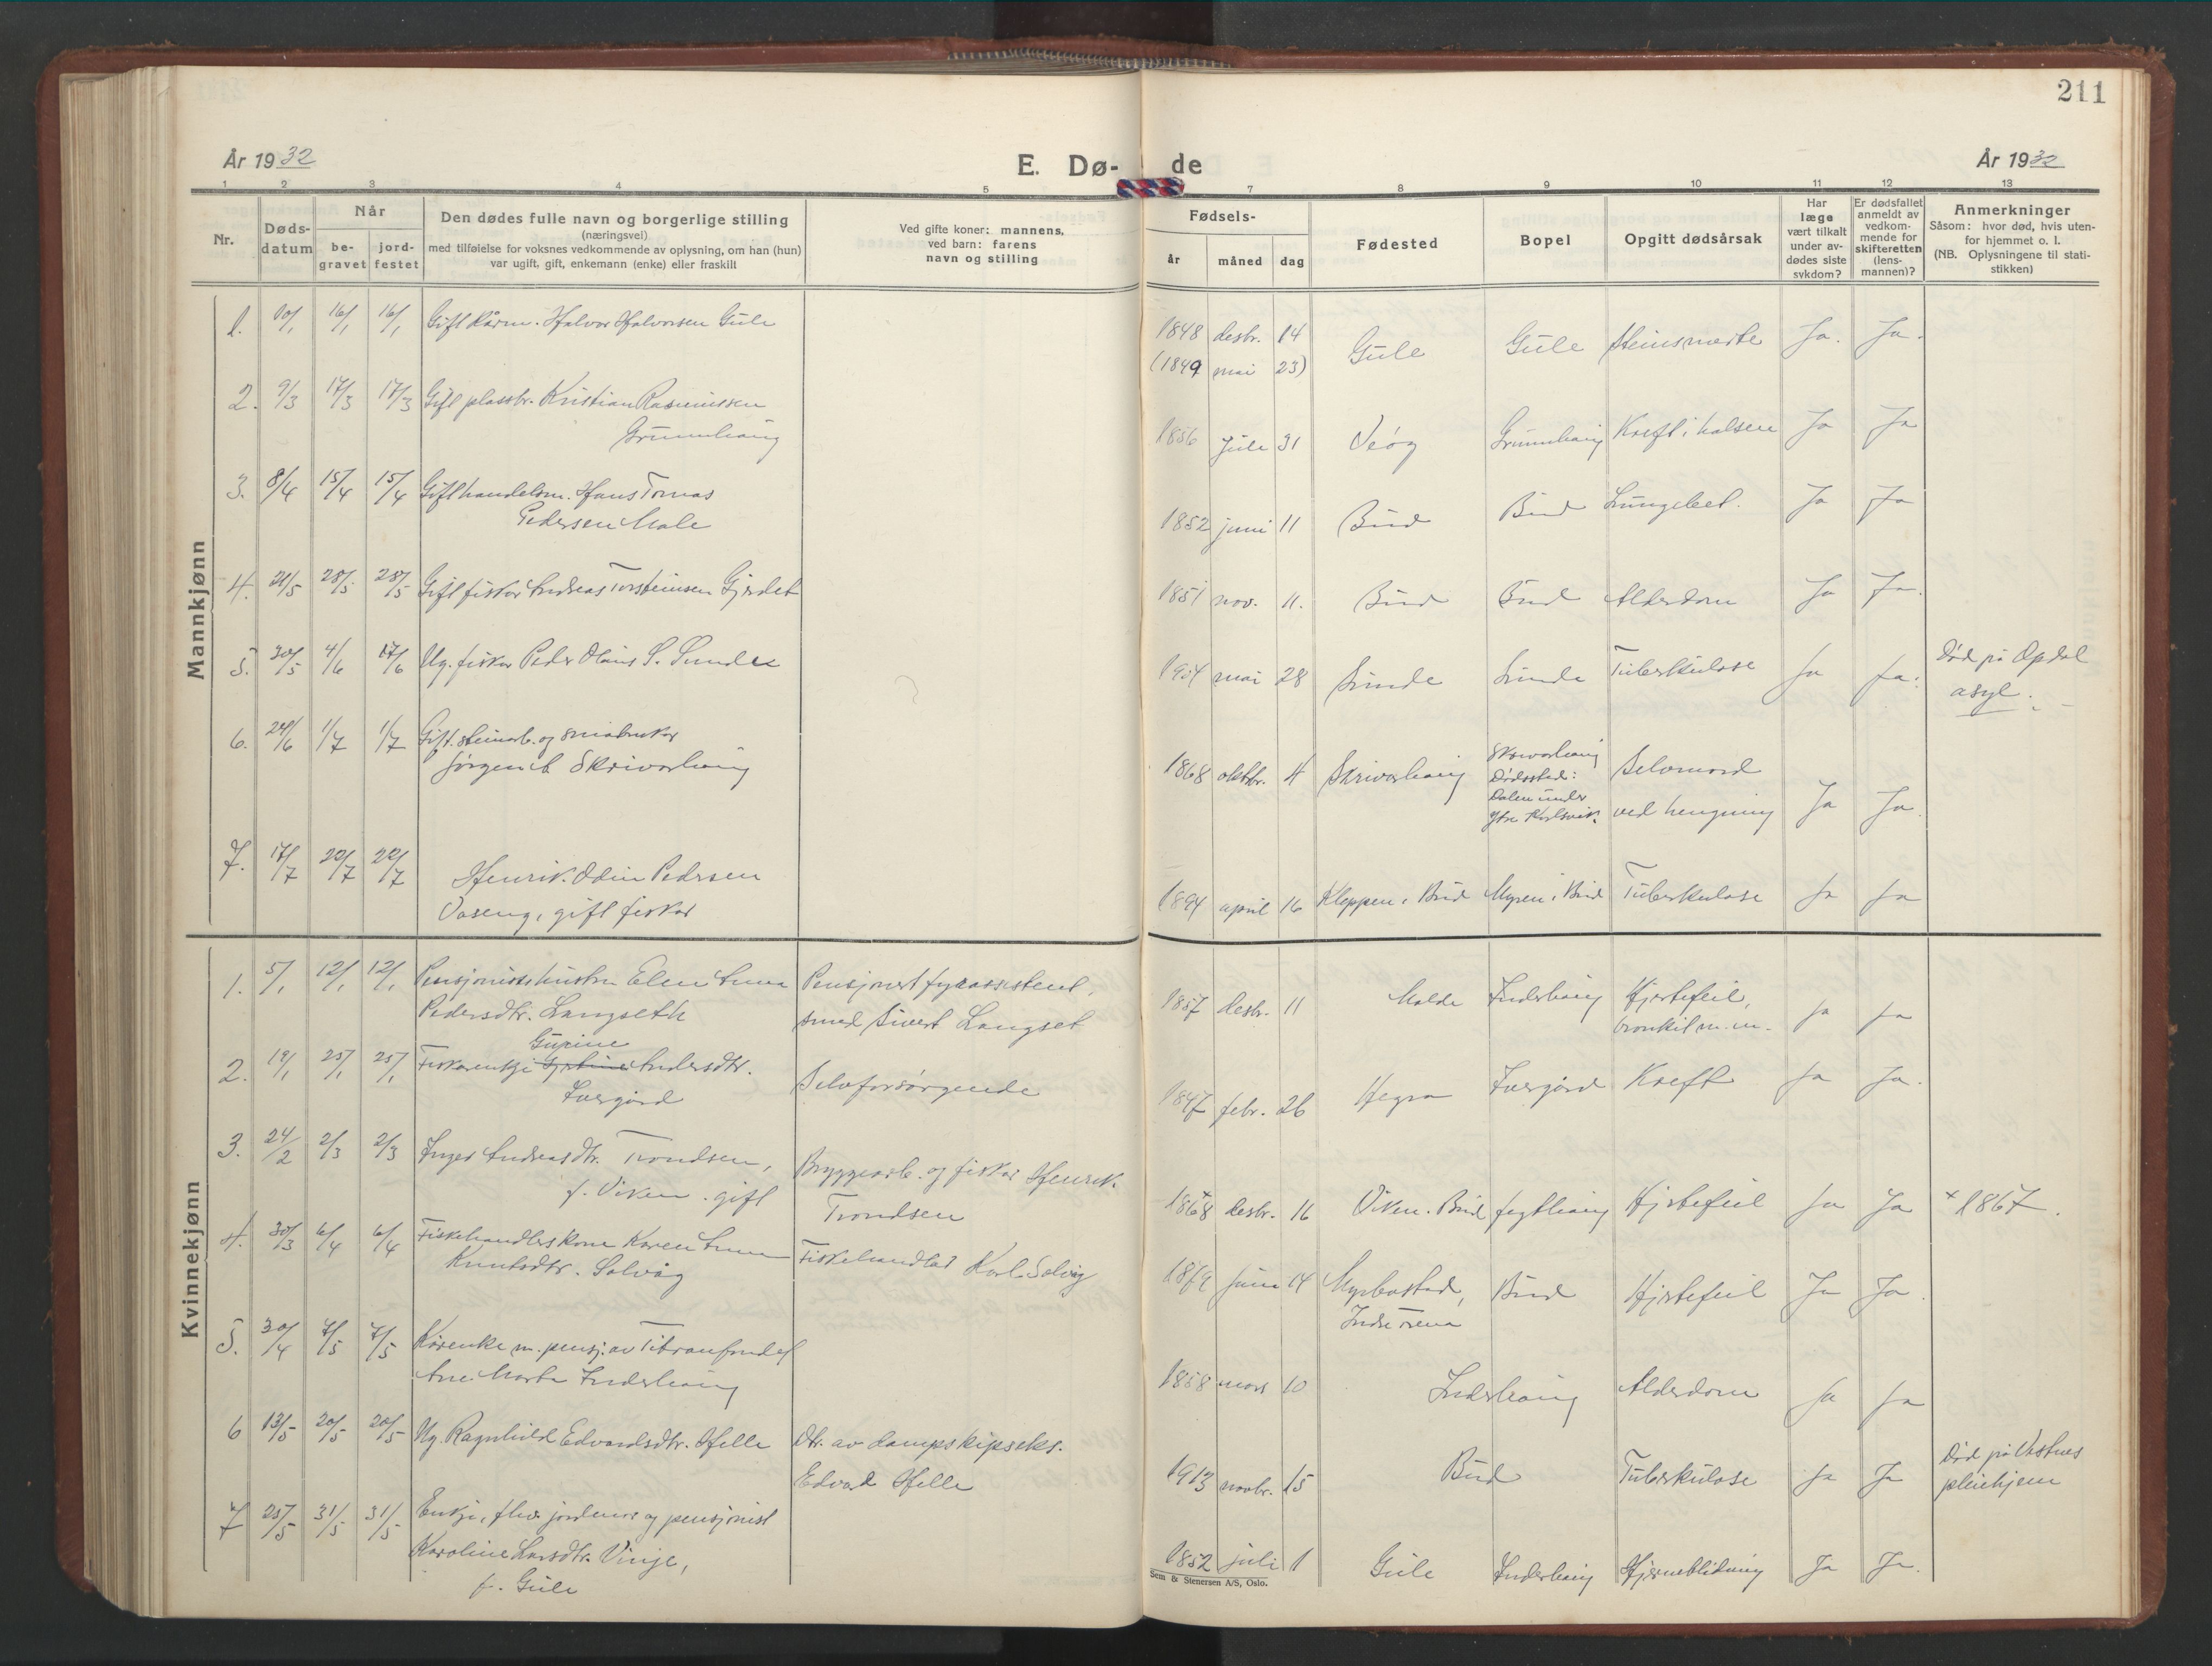 211
År 1932
E. Dø-
de
År 1932
1 2 3 4 5
7 8 9 10 11 12 13
Nr.
Døds-
datum
Når
be-
gravet
jord-
festet
Den dødes fulle navn og borgerlige stilling
(næringsvei)
med tilføielse for voksnes vedkommende av oplysning, om han (hun)
var ugift, gift, enkemann (enke) eller fraskilt
Ved gifte koner: mannens,
ved barn: farens
navn og stilling
Fødsels-
år
måned
dag
Fødested
Bopel
Opgitt dødsårsak
Har
læge
vært tilkalt
under av-
dødes siste
sykdom?
Er dødsfallet
anmeldt av
vedkom-
mende for
skifteretten
(lens-
mannen)?
Anmerkninger
Såsom: hvor død, hvis uten-
for hjemmet o. l.
(NB. Oplysningene til stati-
stikken)
Mannkjønn
1. 10/1 16/1 16/1 Gift kårm. Halvor Halvorsen Gule
1848 desbr. 14
(1849 mai 23)
Gule Gule Ja. Ja.
2. 9/3 17/3 17/3 Gift plassbr. Kristian Rasmussen
Grunnhaug
1856 Juli 31 Veøy Grunnhaug Kreft i halsen Ja Ja
3. 8/4 15/4 15/4 Gift handelsm. Hans Tomas
Pedersen Male
1852 juni 11 Bud Bud Lungebet. Ja Ja
4. 21/5 28/5 28/5 Gift fisker Andreas Torsteinsen Gjerdet
1851 nov. 11. Bud Bud Alderdom Ja Ja.
5. 30/5 4/6 17/6 Ug. fisker Peder Olaus S. Sunde
1904 mai 28 Sunde Sunde Tuberkulose Ja Ja.
Død på Opdøl
asyl.
6. 24/6 1/7 1/7 Gift. steinarb. og småbruker
Jørgen Skrivarhaug
1868 oktbr. 4 Skrivarhaug
Skrivarhaug
Dødssted:
Dalen under
Ytre
Selvmord
ved hengning
Ja Ja.
7. 17/7 22/7 22/7 Henrik Odin Pedersen
Vaseng, gift fisker
1894 april 16 Kleppen i Bud Myren i Bud Tuberkulose Ja Ja
Kvinnekjønn
1. 5/1 12/1 12/1 Pensjonistshustru Elen Anna
Pedersdtr. Langseth
Pensjonert fyrassistent,
smed Sivert Langset
1857 desbr. 11 Molde Inderhaug Hjertefeil,
bronkit m. m.
Ja Ja
2. 19/1 25/1 25/1 Fiskerenkje Gurine Andersdtr.
Iversgård
Selvforsørgende
1847 febr. 26 Hegra Kreft Ja Ja.
3. 24/2 2/3 2/3 Inger Andreasdtr. Trondsen,
f. Viken. gift
Bryggearb. og fisker Henrik
Trondsen
1868 x desbr. 16 Viken. Bud Hjertefeil Ja Ja
x 1867.
4. 30/3 6/4 6/4 Fiskehandlerskone Karen Anna
Knutsdtr. Solvåg
Fiskehandler Karl Solvåg
1879 juni 14 Myrbostad,
Bud Hjertefeil Ja Ja.
5. 30/4 7/5 7/5 Kårenke m. pensj. av Titranfondet
Ane Marta Inderhaug
1858 mars 10 Inderhaug Alderdom Ja Ja
6 13/5 20/5 20/5 Ug. Ragnhild Edvardsdtr. Helle
Dtr. av dampskipseks.
Edvard Helle
1913 novbr. 15 Bud Tuberkulose Ja Ja
Død på Vestnes
pleiehjem
7 25/5 31/5 31/5 Enkje, fhv. jordmor og pensjonist
Karoline Larsdtr. Vinje,
f. Gule
1852 juli 1 Gule Inderhaug Hjerneblødning Ja Ja.
Sem & Stenersen A/S, Oslo.